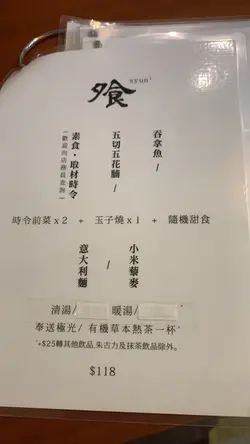 飧
syun¹
吞拿魚 /
五切五花腩 /
素食・取材時令
(歡迎向店務員查詢)
時令前菜x2 + 玉子燒x1 + 隨機甜食
小米藜麥 /
意大利麵
清湯/ 暖湯/
奉送極光/ 有機草本熱茶一杯*
*+$25轉其他飲品,朱古力及抹茶飲品除外。
$118